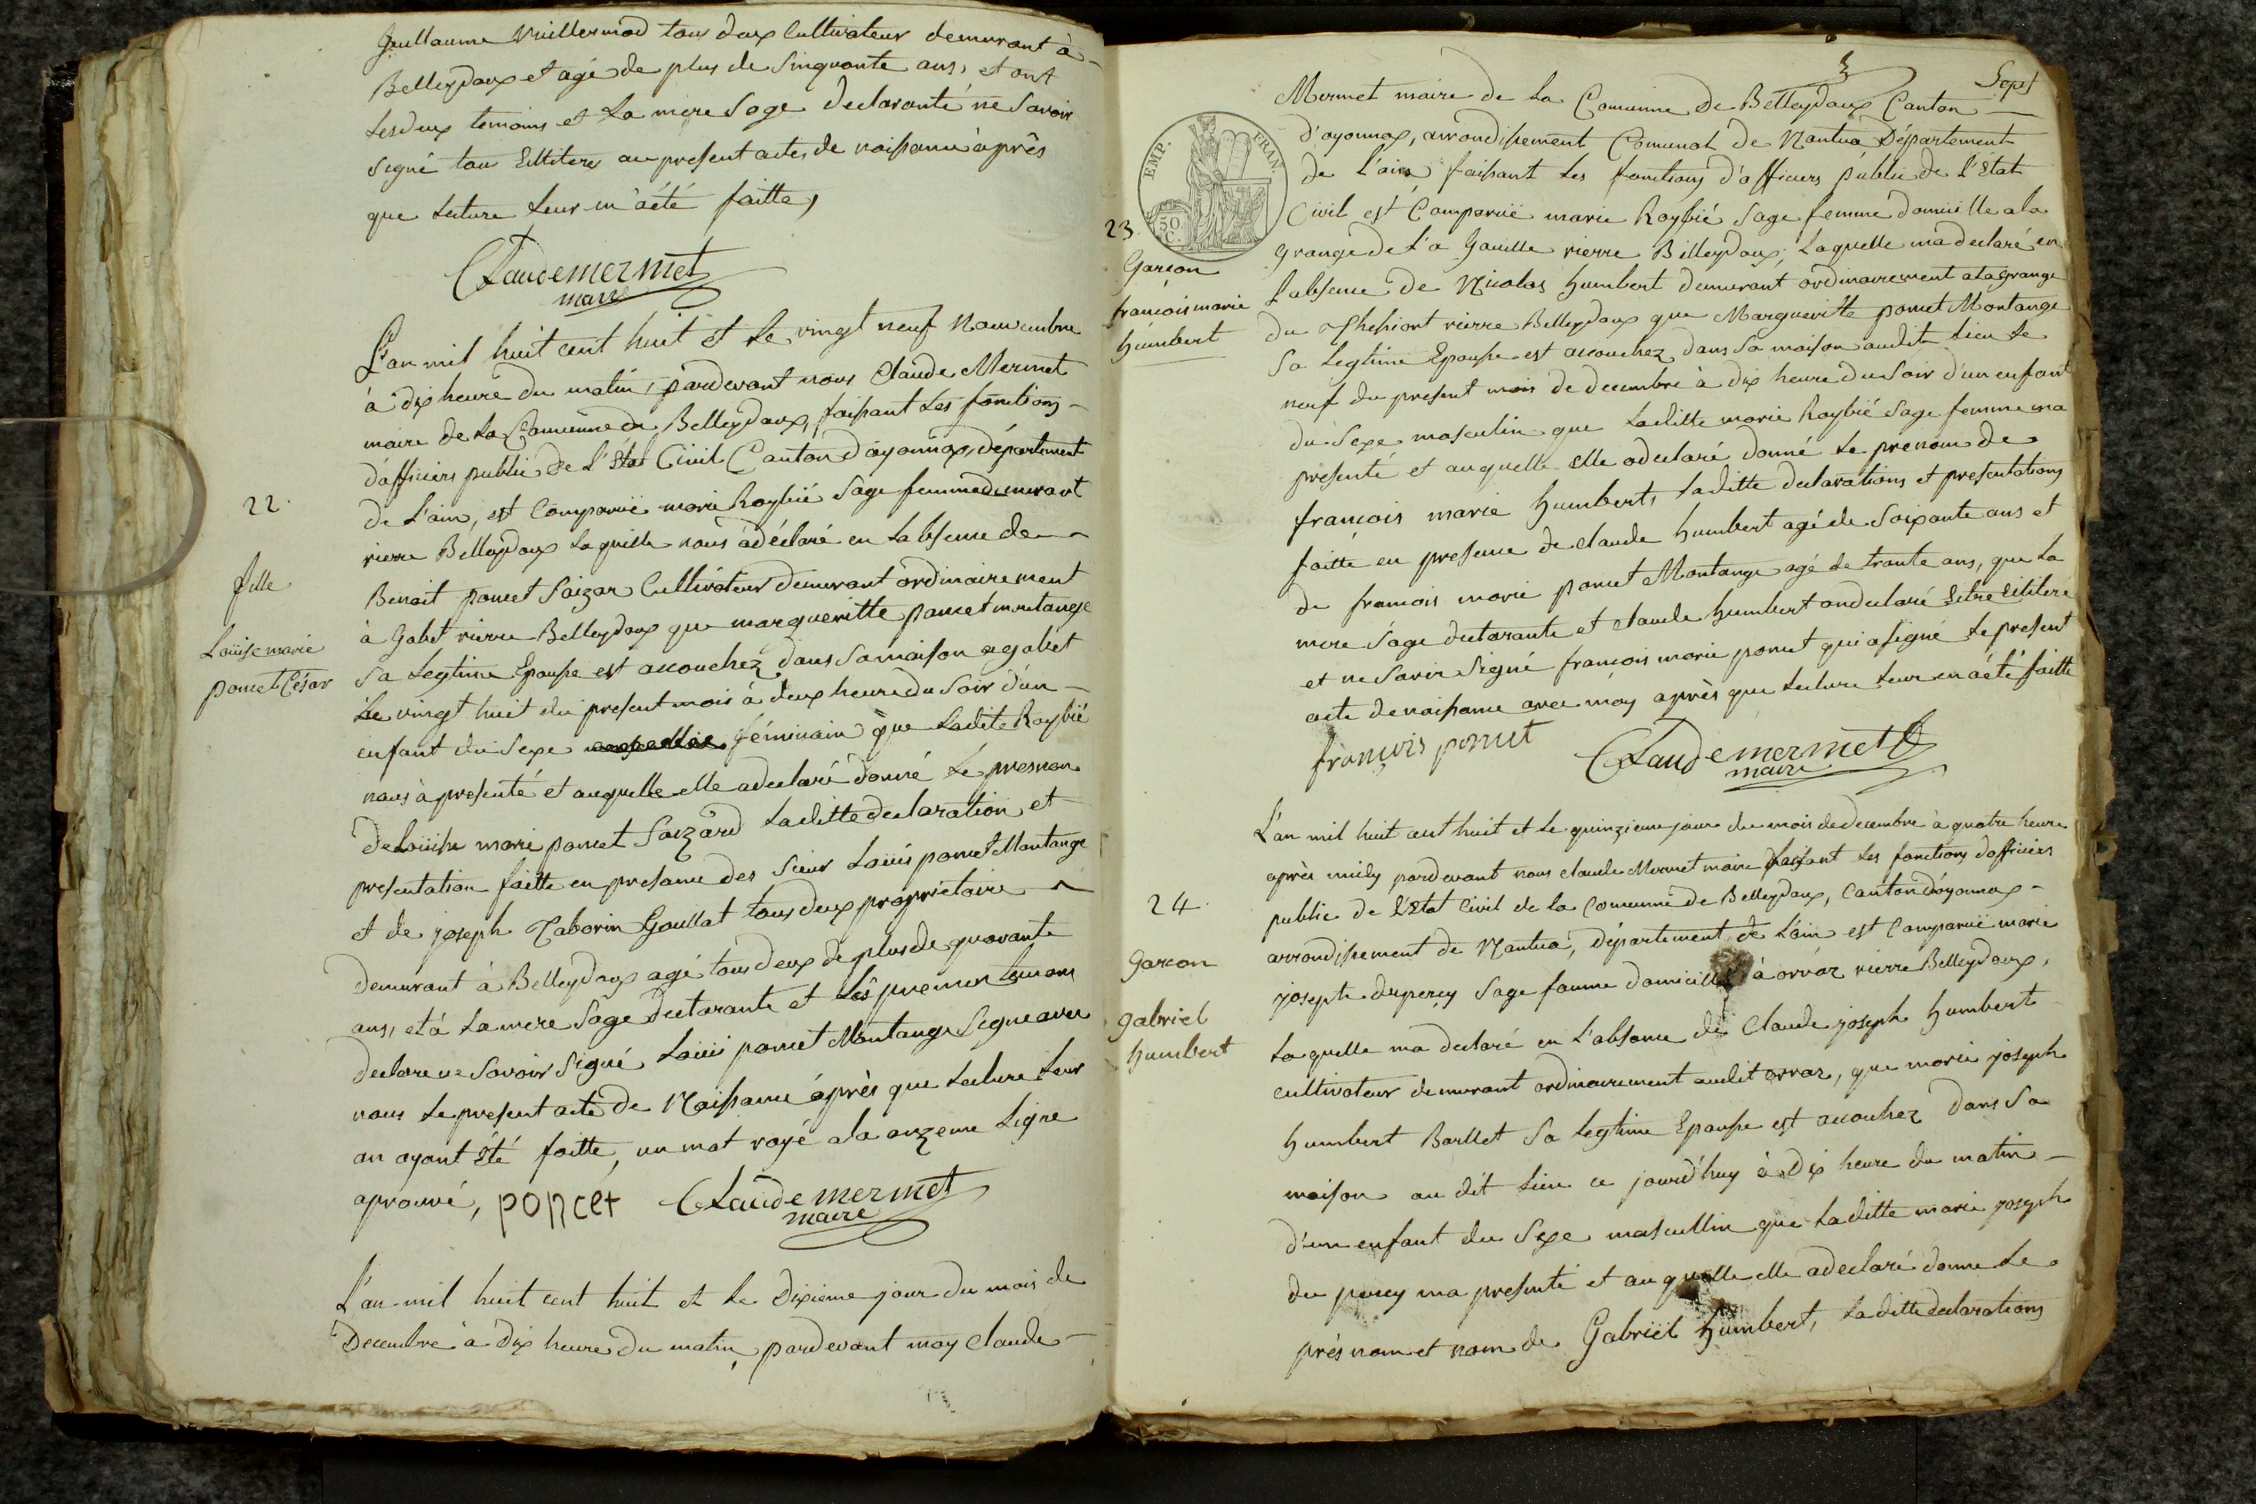 Guillaume Vuillermod tous deux Cultivateur demurant à
Belleydoux et agé de plus de Sinquante ans, et ont
Lesdeux temoins et la mere Sage declarante ne Savoir
Signé tou Littere au present acte de naissance après
que lecture leur en à été faitte,
Claude mermet
maire
22.
fille
Loüise marie
poncet César
L'an mil huit cent huit et le vingt neuf Nouvembre
à dix heure du matin, pardevant nous Claude Mermet
maire de la Comunne de Belleydoux, faissant Les fonctions
d'afficiers public de L'état Civil Canton d'oyonnax, département
de L'ain, est Comparuë marie Roybié Sage femme demurant
rierre Belleydoux laquelle nous a déclaré en Labsence de
Benoit poncet Saizar Cultivateur demurant ordinairement
à Gobet rierre Belleydoux que margueritte poncet montange
Sa Legtime Epousse est acouchez dans Samaison a gobet
Le vingt huit du present mois à deux heure du Soir d'un
enfant du Sexe féminain que Ladite Roybié
nous à presenté et auquelle elle adeclaré donné Le presnon
de Loüisse marie poncet Saizard Laditte declaration et
presentation faitte en presance des Sieur Loüis poncet Montange
et de joseph Taborin Goullat tous deux propriétaire
demurant à Belleydoux agé tous deux de plus de quarante
ans, et à La mere Sage declarante et Les premier temoins
declare ne Savoir Signé Loüis poncet Montange Signe avec
nous le present acte de Naissance après que lecture leur
an ayant Eté faitte, un mot rayé a la onzeme Ligne
aprouvé, poncet Claude mermet
maire
L'an mil huit cent huit et le Dixieme jour du mois de
Decembre à dix heure du matin pardevant moy Claude
Sept
Mermet maire de La Comunne de Belleydoux Canton
d'oyonnax, arrondissement Comunal de Nantua Département
de L'ain faissant Les fonctions d'officiers public de L'Etat
EMP. FRAN.
50 C.
23
Garcon
françois marie
humbert
Civil est Comparuë marie Roybié Sage femme domicille a la
grange de L'a Gouille rierre Belleydoux, Laquelle ma declaré en
Labsence de Nicolas humbert demurant ordinairement a La grange
du rierre Belleydoux que Marguerite poncet Montange
Sa Legtime Epousse est acouchez dans Sa maison audit Lieu Le
neuf du present mois de decembre à dix heure du Soir d'un enfant
du Sexe masculin que Laditte marie Roybié Sage femme ma
presenté et auquelle elle adeclaré donné Le prenom de
françois marie humbert, Laditte declarations et presentations
faitte en presence de claude humbert agé de Soixante ans et
de francois marie poncet Montange agé de trante ans, que La
mere Sage declarante et claude humbert on declaré Litre
et ne Savoir Signé francois marie poncet qui a Signé Le present
acte de naissance avec moy après que Lecture Leur en à été faitte
françois poncet Claude mermet
maire
24.
Garcon
gabriel
humbert
L'an mil huit cent huit et Le quinzieme jour du mois de decembre à quatre heure
après midy pardevant nous claude Mermet maire faisant Les fonctions dofficiers
public de L'Etat Civil de la Comunne de Belleydoux, Canton d'oyonnax
arrondissement de Nantua, département de L'ain est Comparuë marie
joseph duperey Sage famme domicillé à orvaz rierre Belleydoux,
Laquelle ma declaré en L'absance de Claude joseph humbert
cultivateur demurant ordinairement audit orvaz, que marie joseph
humbert Barllet Sa legtime Epousse est acouchez dans Sa
maison au dit Lieu ce jourd'huy à dix heure du matin
d'un enfant du Sexe mascullin que Laditte marie joseph
du perey ma presenté et auquelle elle adeclaré donne Le
près nom et nom de Gabriël humbert, Laditte declarations